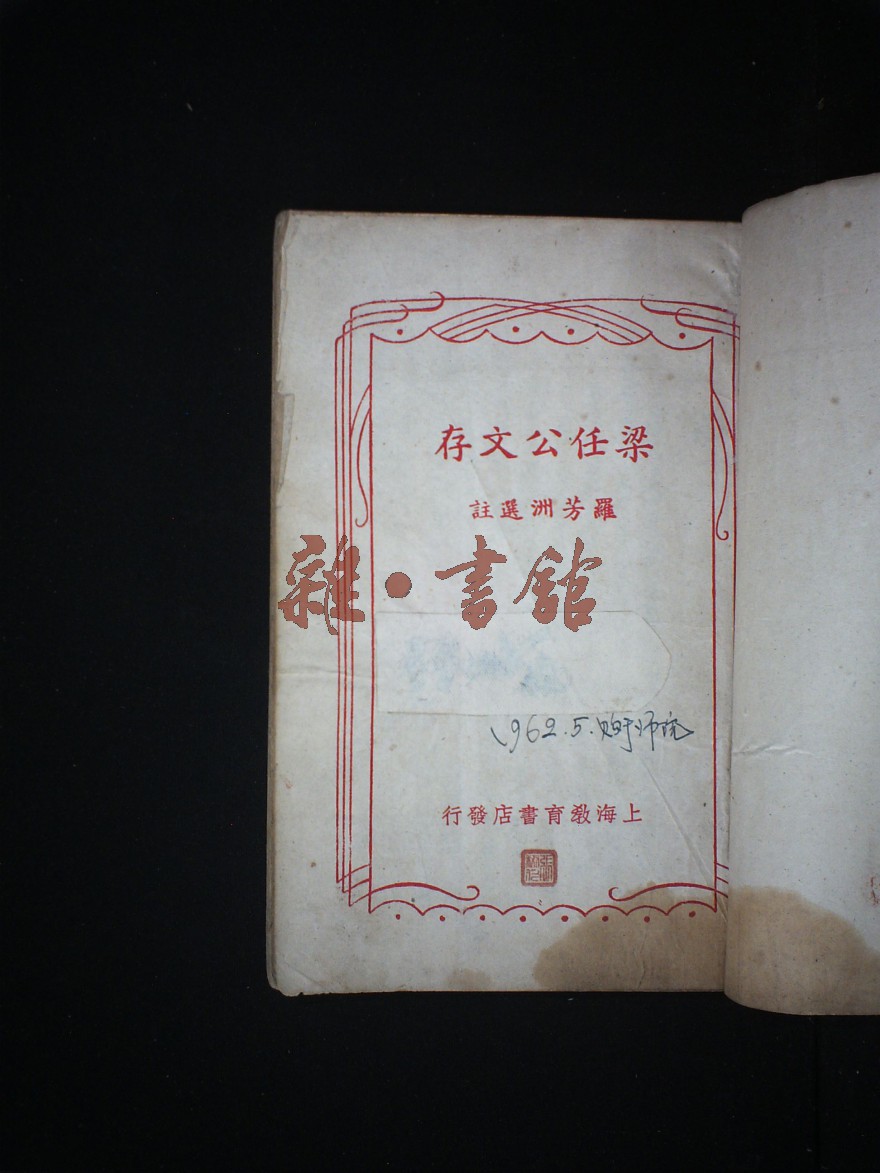 梁任公文存
羅芳洲選註
雜·書館
1962.5.购于师院
上海教育書店發行